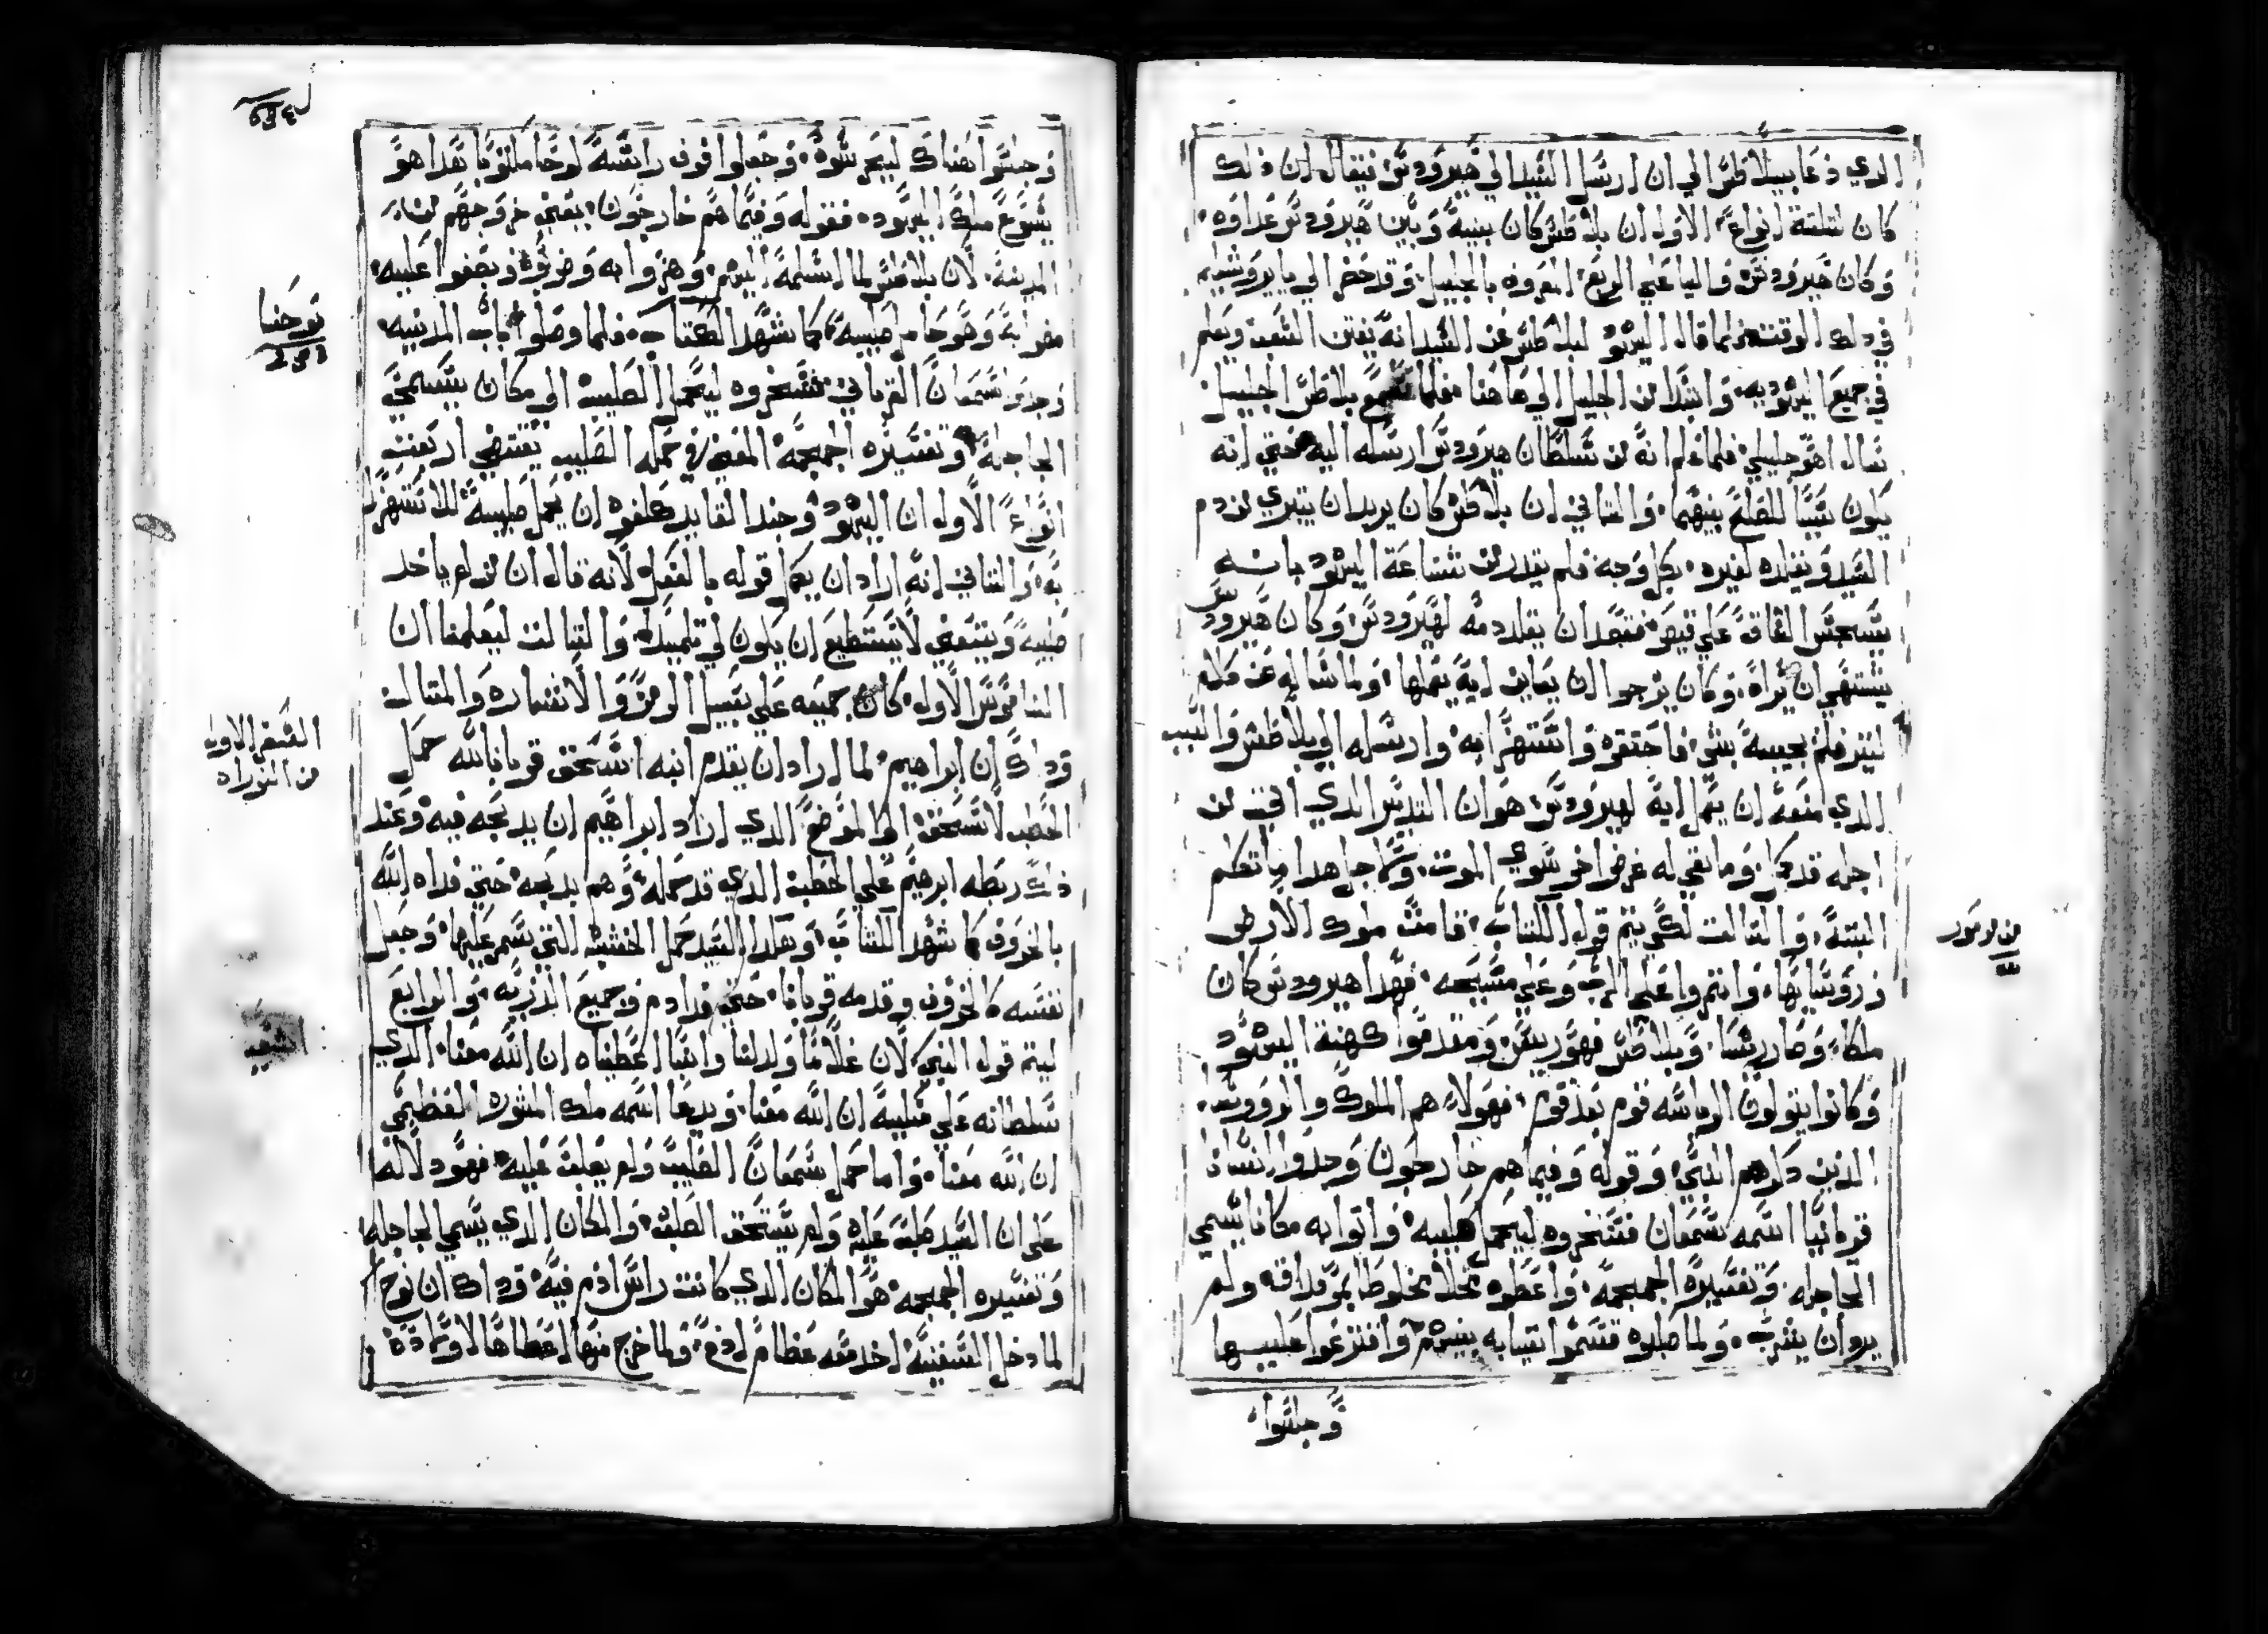 الدي دعا بيلاطس الي ان ارسل السيد الي هيرودس فيقال ان ذلك
كان لثلثة انواع الاول ان بلاطس كان بينه وبين هيرودس عداوه
وكان هيرودس واليا علي الربع المعروفه بالجليل وقد حضر الي يايروشليم
في دلك الوقت فلما قال اليهود لبلاطس عن السيد انه يفتن الشعب ويعلم
في جميع اليهوديه وابتدا من الجليل الي هاهنا فلما سمع بلاطس الجليل
قال اهو جليلي فلما علم انه من سلطان هيرودس ارسله اليه حتي انه
يكون سببا للصلح بينهما والثاني ان بلاطس كان يريد ان يتبري من دم
السيد ويقلده لغيره بكل وجه فلم يقدر من شناعة اليهود بانه
يستحبس النفاق علي قيصر فقصد ان يقلد دمه لهيرودس وكان هيرودس
يشتهي ان يراه وكان يرجوا ان يعاين اية يعملها ولما ساله عن كلام
كتير فلم يجيبه بشي فاحتقره واستهزا به وارسله الي بلاطس والسبب
الدي منعه ان يعمل اية لهيرودس هو ان التدبير الدي اتي من
اجله قد كمل وما بقي له غرض اخر سوي الموت ومن اجل هدا ما تكلم
البتة والتالت لكي يتم قول الكتاب قامت ملوك الارض
وروسايها وانتمروا علي الرب وعلي مسيحه فهدا هيرودس كان
ملكا وصار رئيسا وبلاطس فهو رييس ومقدموا كهنة اليهود
وكانوا يتولون الرياسه قوم بعد قوم فهولاء هم الملوك والروسا
الذين دكرهم النبي وقوله وفيما هم خارجون وجدوا انسانا
قريانيا اسمه سمعان فسخروه ليحمل صليبه واتوا به مكانا يسمي
الجاجله وتفسيره الجمجمه واعطوه خلا مخلوطا بمر فداقه ولم
يرد ان يشرب ولما صلبوه قسموا تيابه بينهم واقترعوا عليها
وجلسوا
وجلسوا هناك ليحرسوه وجعلوا فوق راسه لوحا مكتوبا هدا هو
يسوع ملك اليهود فقوله وفيما هم خارجون يعني خروجهم من
المدينة لان بلاطس لما اسلمه اليهم وهزوا به وضربوه وبصقوا عليه
مضوا به وهو حامل صليبه كما شهد الكتاب فلما وصلوا باب المدينه
وجدوا سمعان القرياني فسخروه ليحمل الصليب الي مكان يسمي
الجاجلة وتفسيره الجمجمة المعني في حمله الصليب يقتضي اربعت
انواع الاول ان اليهود وجند القايد كلفوه ان يحمل صليبه للاستهزا
به والتاني انه اراد ان يكمل قوله بالفعل لانه قال ان من لم ياخد
صليبه ويتبعني لا يستطيع ان يكون لي تلميدا والتالت ليعلمنا ان
الناموس الاول كان جميعه علي سبيل الرمز والاشاره والمتال
وداك ان ابراهيم لما اراد ان يقدم ابنه اسحق قربانا لله حمل
الحطب لاسحق الي الموضع الدي اراد ابراهيم ان يدبحه فيه وعند
ذلك ربطه ابرهيم علي الحطب الدي قد حمله وهم بدبحه حتي فداه الله
بالخروف كما شهد الكتاب وهكدا السيد حمل الخشبه التي سمر عليها وجعل
نفسه كالخروف وقدمه قربانا حتي فدا ادم وجميع الذريه والرابع
ليتم قول النبي لان غلاما ولد لنا وابنا اعطيناه ان الله معنا الدي
سلطانه علي منكبيه ان الله معنا ويدعا اسمه ملك المشوره العظيمي
ان الله معنا واما حمل سمعان الصليب ولم يصلب عليه فهو دلاله
علي ان السيد صلب عليه ولم يستحق الصلب والمكان الدي يسمي الجاجله
وتفسيره الجمجمه هو المكان الدي كانت راس ادم فيه وداك ان نوح
لما دخل السفينه اخد معه عظام ادم ولما خرج منها اعطاها لاولاده
يوحنا
السفر الاول
من التوراه
اشعيا
من مزمور